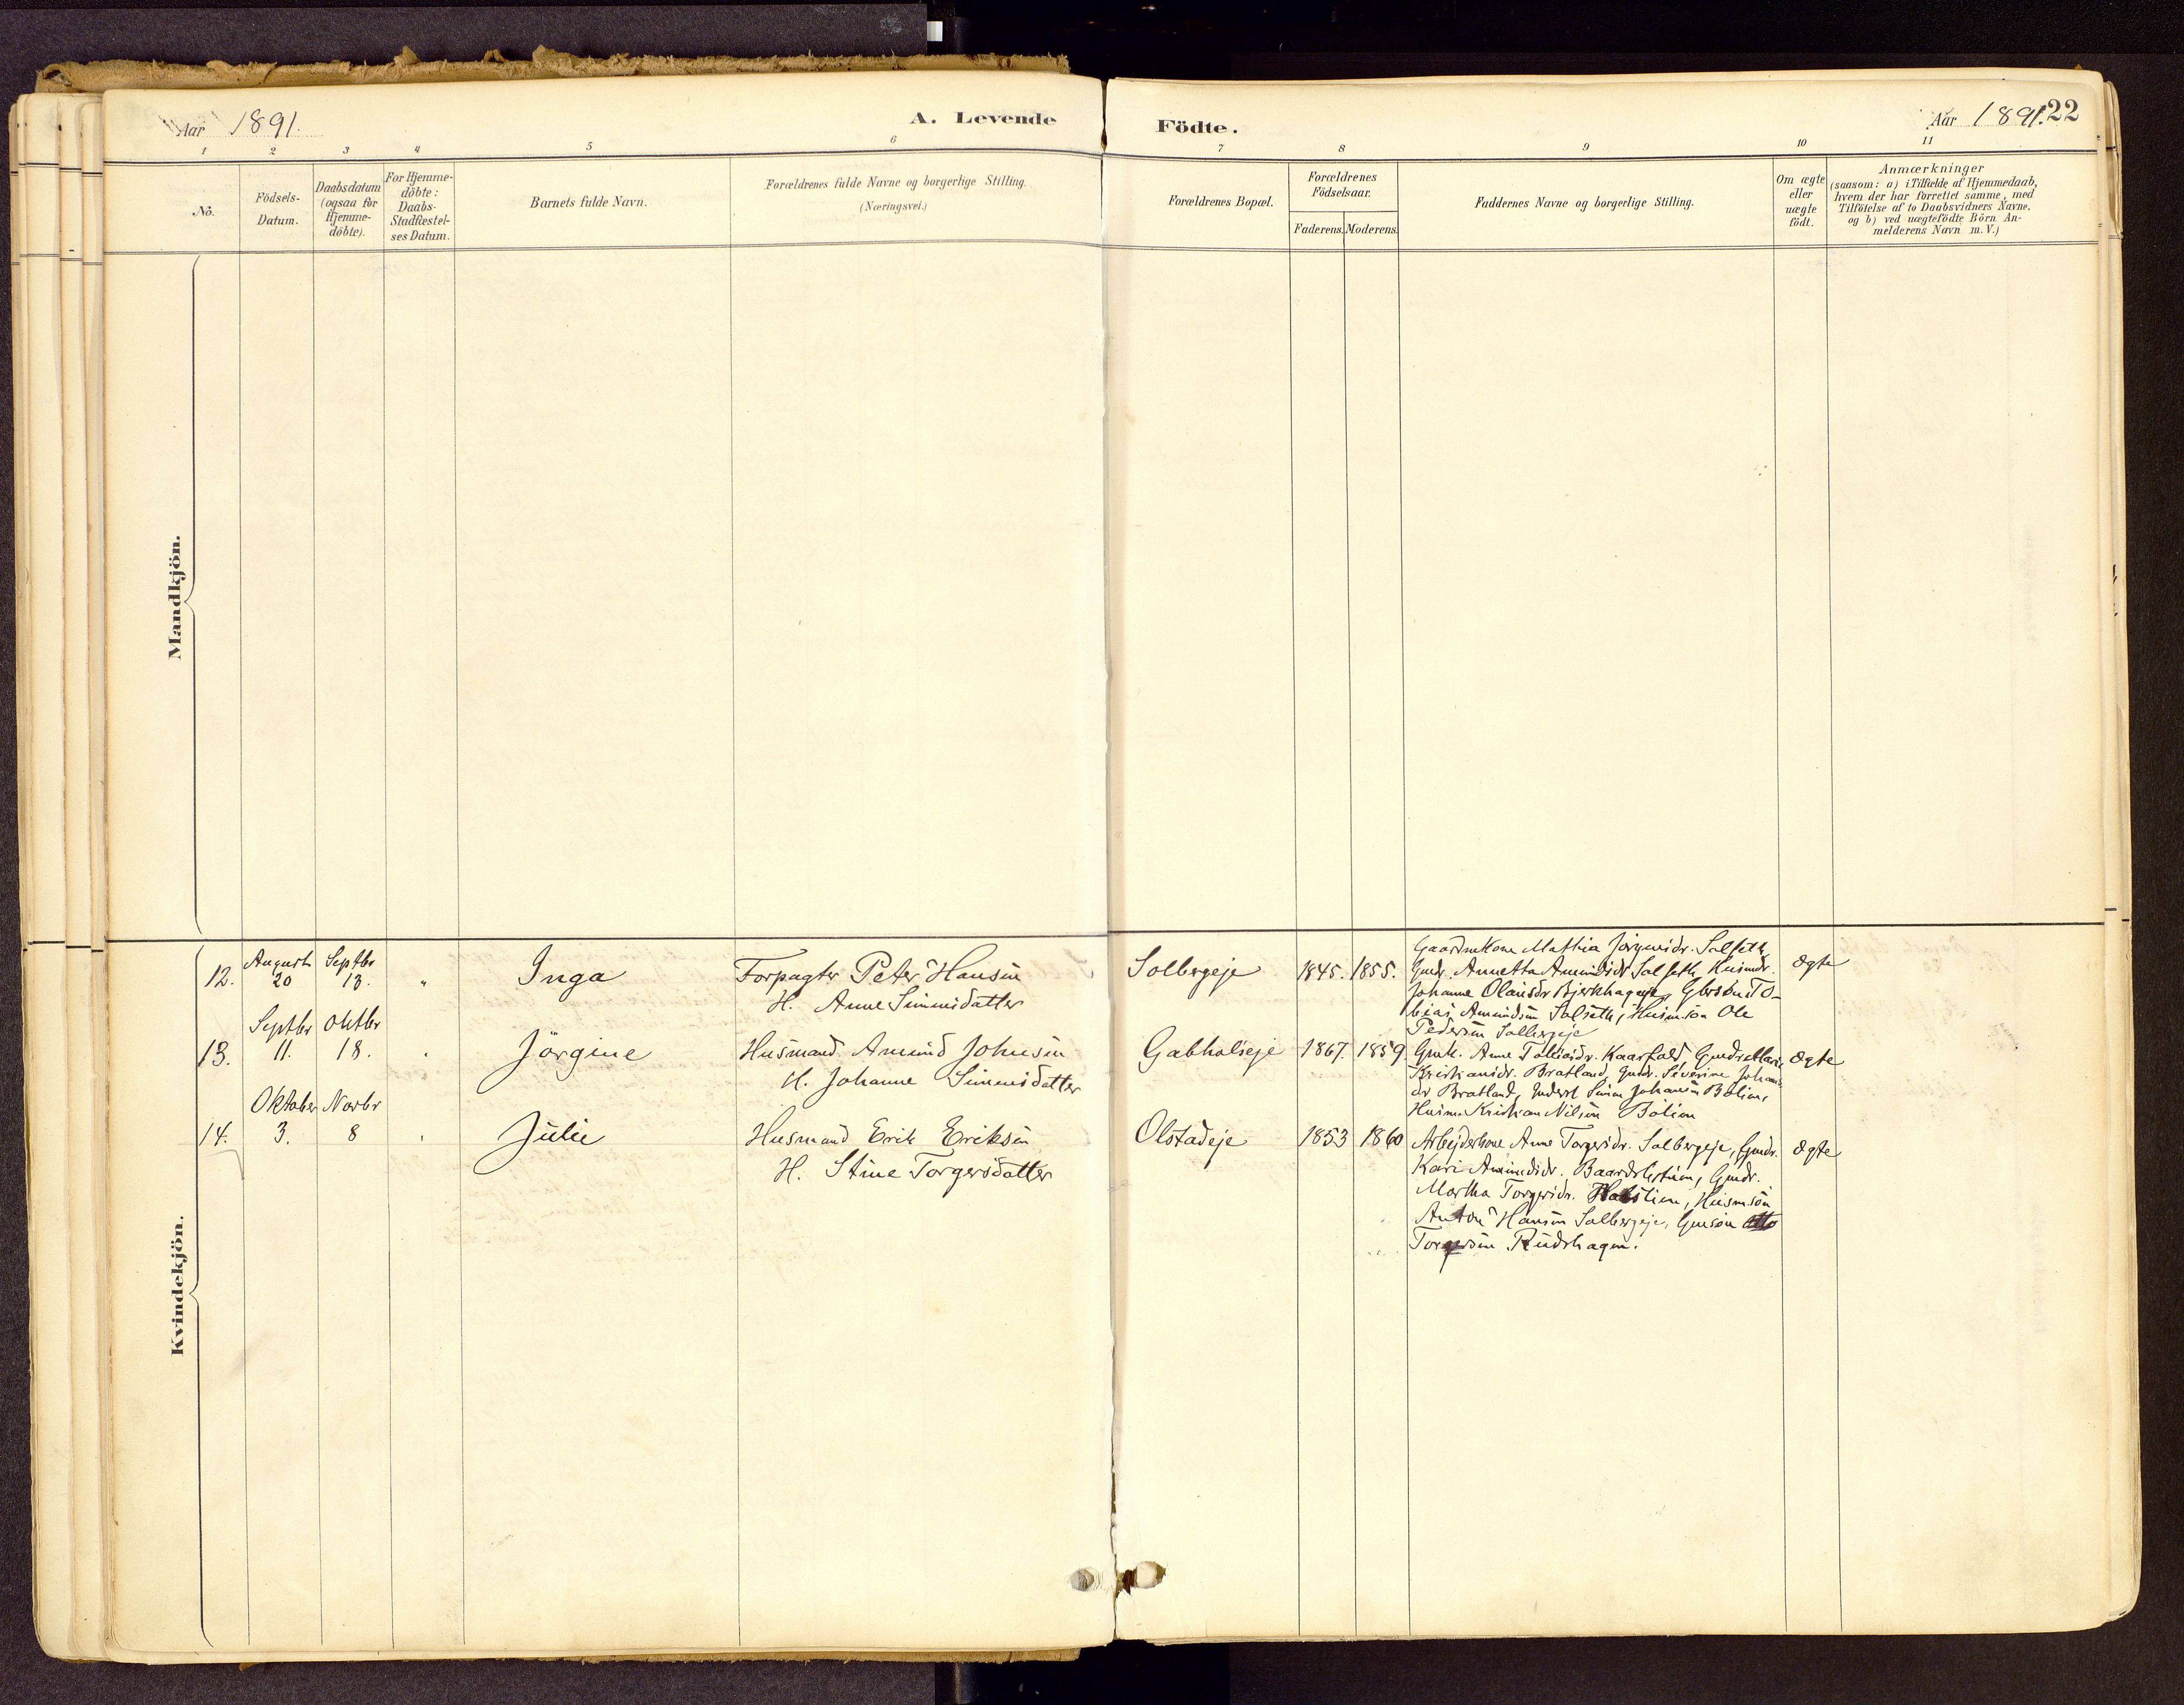 Aar 1891.
A. Levende
Födte.
Aar 1891.
22
1 2 3 4 5 6 7 8 9 10 11
No.
Födsels-
Datum.
Daabsdatum
(ogsaa for
Hjemme-
döbte).
For Hjemme-
döbte:
Daabs-
Stadfæstel-
ses Datum.
Barnets fulde Navn.
Forældrenes fulde Navne og borgerlige Stilling.
(Næringsvei.)
Forældrenes Bopæl.
Forældrenes
Födselsaar.
Faderens. Moderens.
Faddernes Navne og borgerlige Stilling.
Om ægte
eller
uægte
födt.
Anmærkninger
(saasom: a) i Tilfælde af Hjemmedaab,
hvem der har forrettet samme, med
Tilföielse af to Daabsvidners Navne.
og b) ved uægtefödte Börn An-
melderens Navn m. V.)
Mandkjön.
Kvindekjön.
12.
August
20
Septbr
13.
"
Inga
Forpagter Peter Hansen
H. Anne Simensdatter
Solbergeje
1845. 1855.
Gaardmkone Mathia Jörgensdr. Solseth,
Gmdr. Annetta Amundsdr Solseth, Husmdr.
Johanne Olausdr Bjerkhageeje, Gbrsbr To-
bias Amundsen Solseth, Husm.sön Ole
Pedersen Solbergeje
ægte
13.
Septbr
11.
Oktbr
18.
"
Jörgine
Husmand Amund Johnsen
H. Johanne Simensdatter
Gabholseje
1867. 1859.
Gmk. Anne Tobiasdr. Kaarfald, Gmdr. Mari
Kristiansdr. Bratland, Gmdr. Severine Johans
dr Bratland, Simen Johansen Bölien,
Husm. Kristian Nilsen Bölien
ægte
14.
Oktober
3.
Novbr
8
"
Julie
Husmand Erik Eriksen
H. Stine Torgersdatter
Olstadeje
1853 1860
Arbejderkone Anne Torgersdr. Solbergeje, Gmdr.
Kari Amundsdr. Gmdr.
Martha Torgersdr. Husmsön
Anton Hansen Solbergeje, Gmsön Otto
Torgersen Rudshagen.
ægte